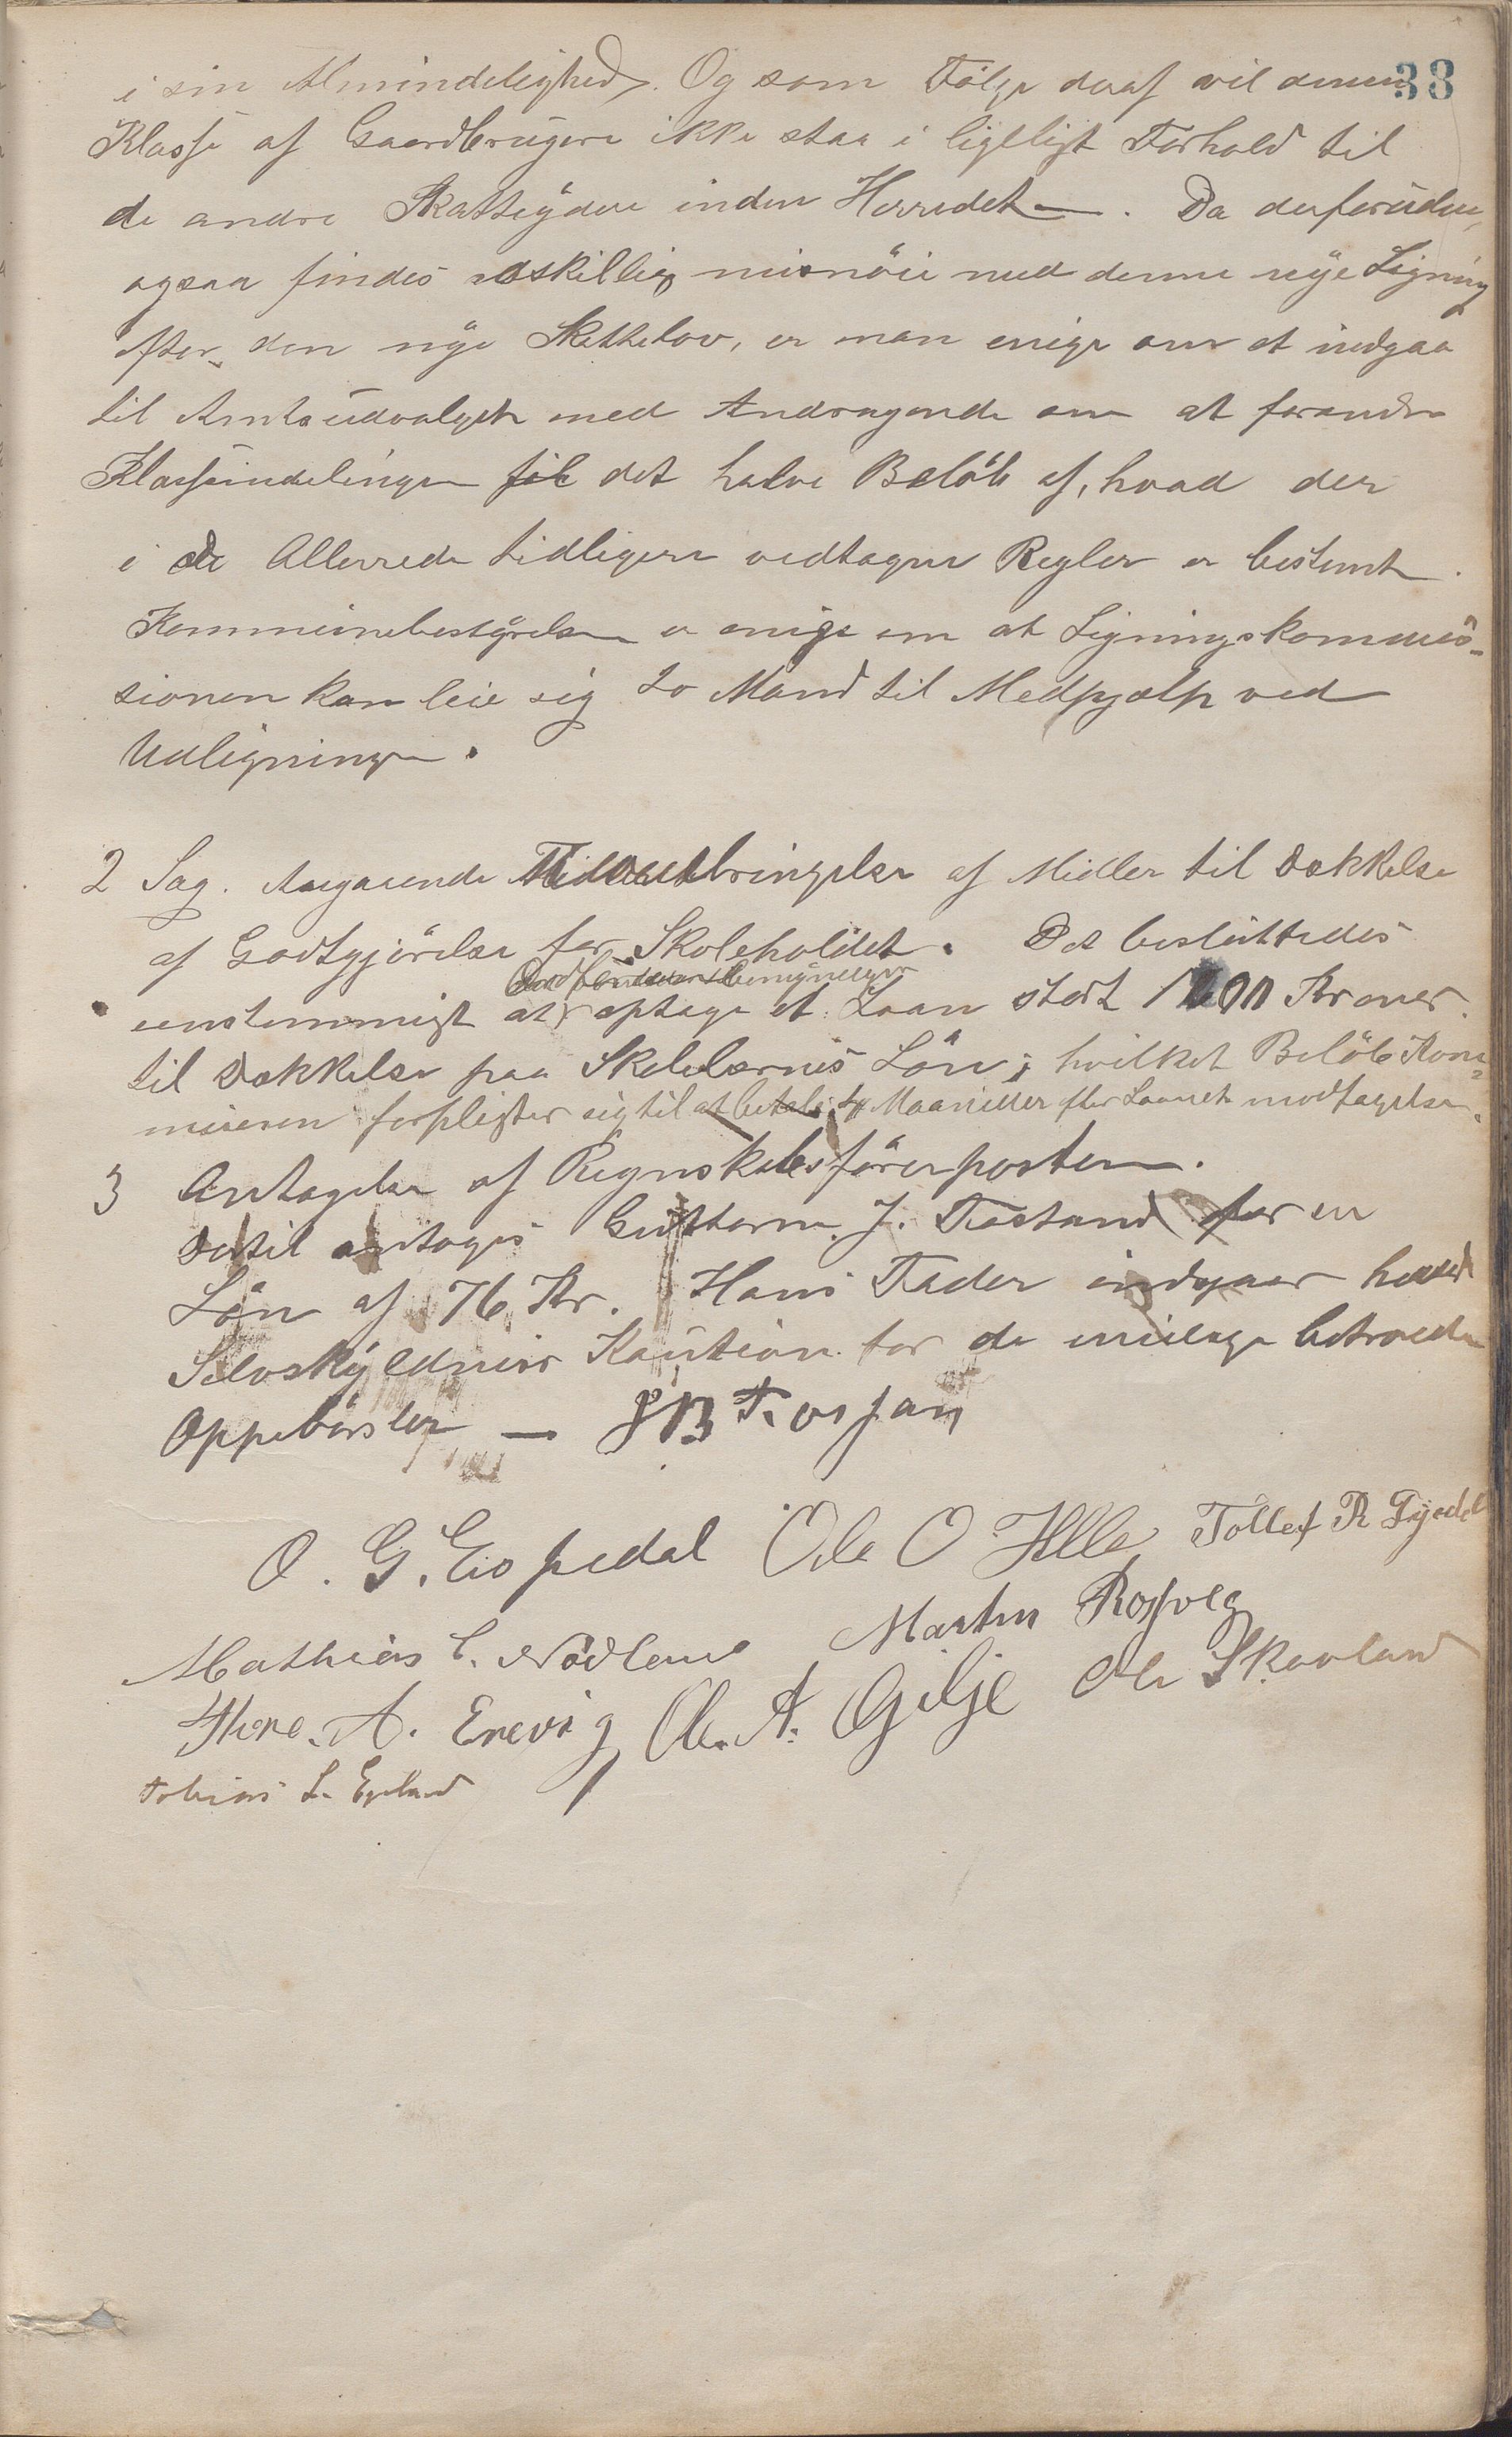 38
i sin Almindelighed. Og som Følge deraf vil denne
Klasse af Gaardbrugere ikke staa i ligeligt Forhold til
de andre Skatteydere inden Herredet. Da desforuden
ogsaa findes adskillig misnöie med denne nye Ligning
efter den nye Skattelov, er man enige om at indgaa
til Amtsudvalget med Andragende om at forandre
Klasseindelingen til det halve Belöb af, hvad der
i de Allerrede tidligere vedtagne Regler er bestemt.
Kommunebestyrelsen er enige om at Ligningskommis-
sionen kan leie sig to Mand til Medhjælp ved
Udligningen.
2 Sag. Angaaende Tilveiebringelse af Midler til Dækkelse
af Godtgjörelse for Skoleholdet. Det besluttedes
Ordföreren bemyndiges
eenstemmigt at optage et Laan stort Kroner
til Dækkelse paa Skolelærernes Lön; hvilket Belöb Kom-
munen forpligter sig til at betale 4 Maaneder efter Laanets modtagelse.
3 Antagelse af Regnskabsförerposten.
Dertil antoges Guttorm J. Fosand for en
Lön af 76 Kr. Hans Fader indgaar herved
Selvskyldner Kaution for de hans betroede
Oppebörsler — J B Fossan
O. G. Eispedal Ole O Helle Tollef R Fyedel
Mathias C. Nödland Martin Rossvog
Thore. A. Erevig Ole. A. Gilje Ole Skavland
Tobias L. Epeland